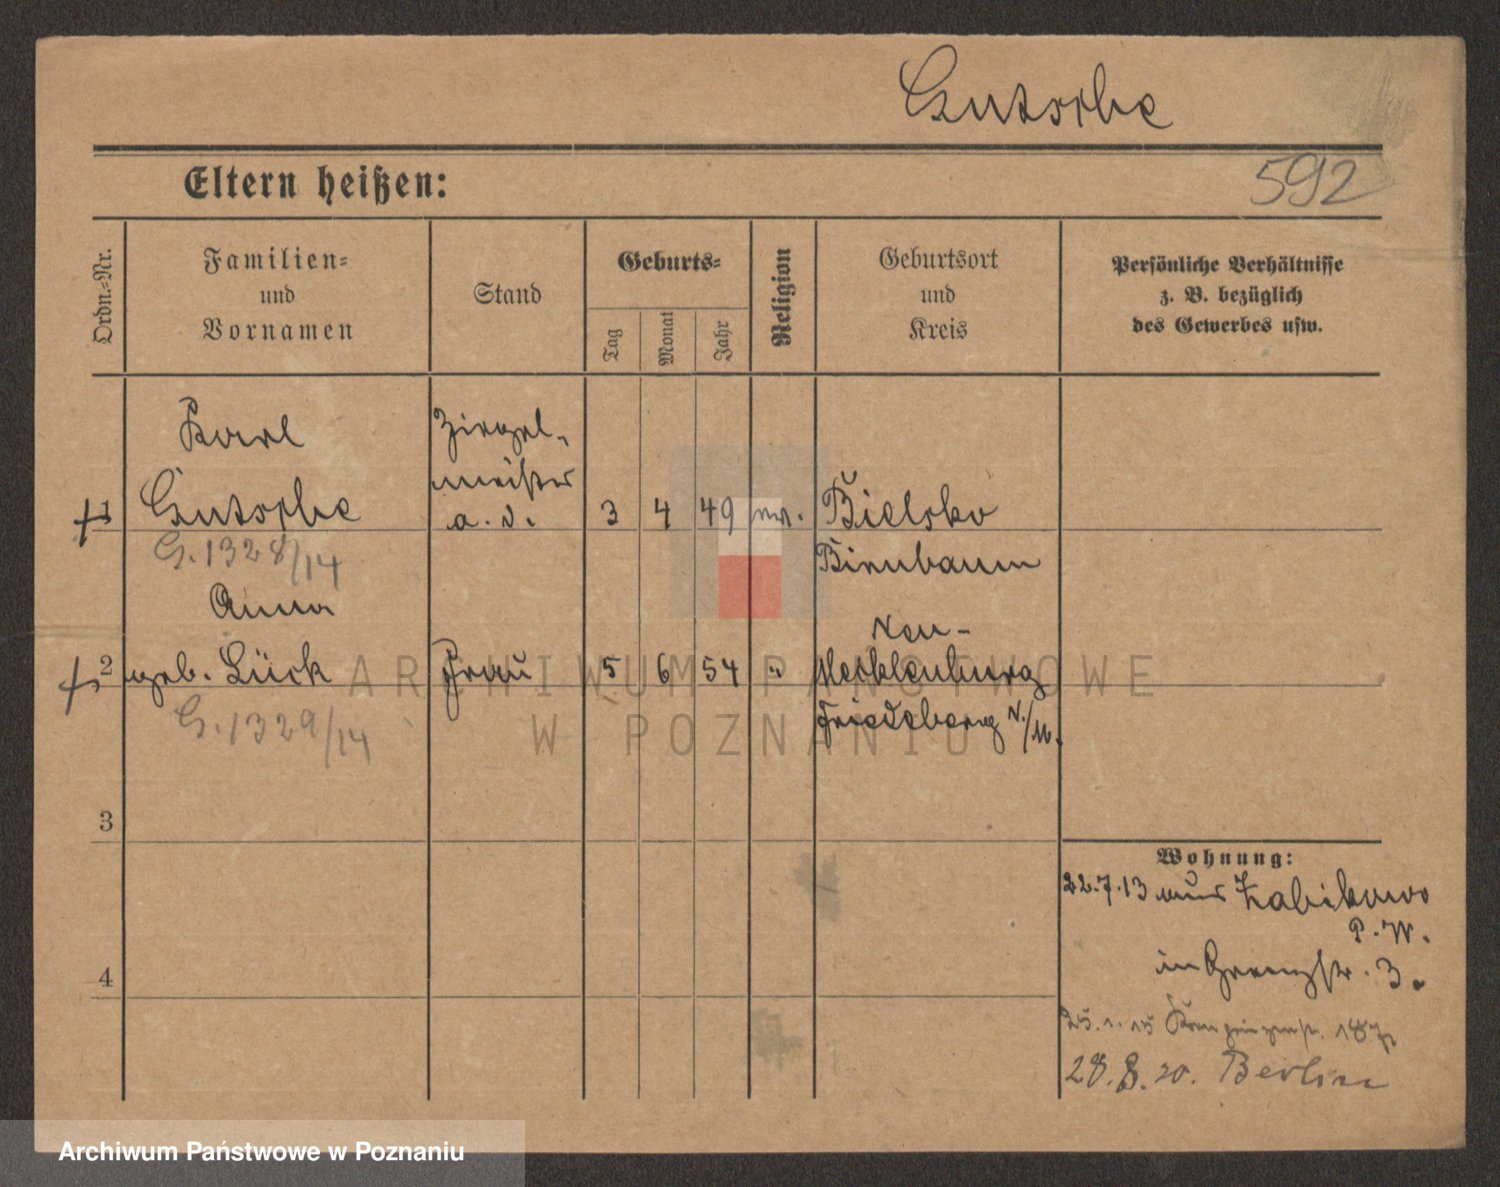 Gutsche
592
Eltern heißen:
Ordn.-Nr.
Familien-
und
Vornamen
Stand
Geburts-
Tag
Monat
Jahr
Religion
Geburtsort
und
Kreis
Persönliche Verhältnisse
z. B. bezüglich
des Gewerbes usw.
Karl
Ziegel-
meister
1 Gutsche a. D. 3 4 49 Bielsko
G. 1328/14
Birnbaum
Anna
Neu-
2 geb. Lück Frau 5 6 54 " Mecklenburg
G. 1329/14
Friedeberg N./M.
ARCHIWUM PAŃSTWOWE
W POZNANIU
3
4
Wohnung:
22.7.13 aus Zabikowo
P. W.
in Grenzstr. 3.
25.1.15 Kronprinzenstr.
28.8.20. Berlin
Archiwum Państwowe w Poznaniu